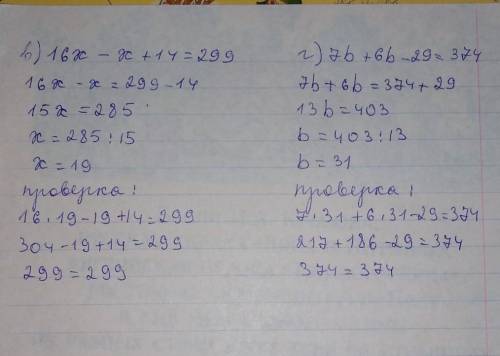 в) 16x - x + 14 = 299
16x - x = 299 - 14
15x = 285
x = 285 : 15
x = 19
проверка:
16 · 19 - 19 + 14 = 299
304 - 19 + 14 = 299
299 = 299
г) 7b + 6b - 29 = 374
7b + 6b = 374 + 29
13b = 403
b = 403 : 13
b = 31
проверка:
7 · 31 + 6 · 31 - 29 = 374
217 + 186 - 29 = 374
374 = 374